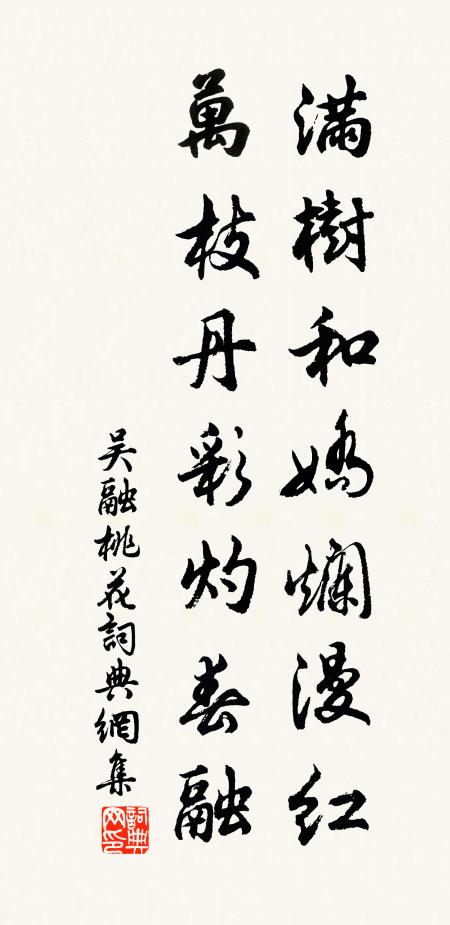 滿樹和嬌爛漫紅
萬枝丹彩灼春融
吴融桃花詞典網集
詞典网印